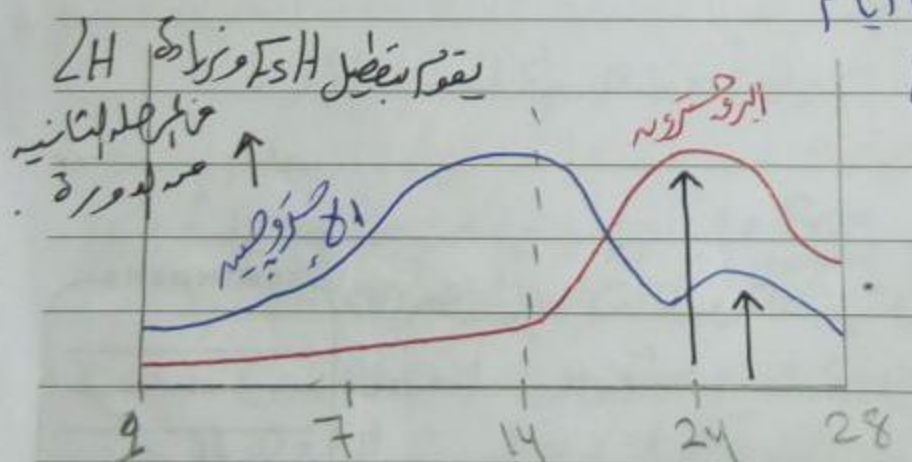 يقوم بتفضيل FSH وزيادة LH
في المرحلة الثانية
من الدورة.
البروجسترون
الإستروجين
1 7 14 24 28